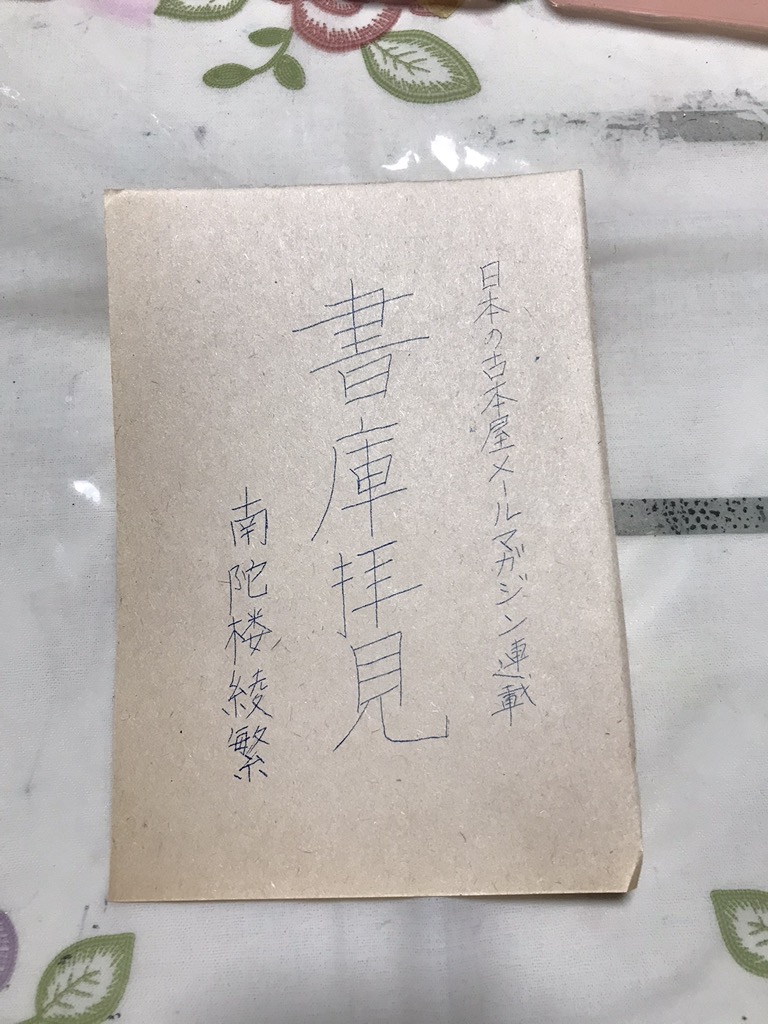 日本の古本屋メールマガジン連載
書庫拝見
南陀楼綾繁